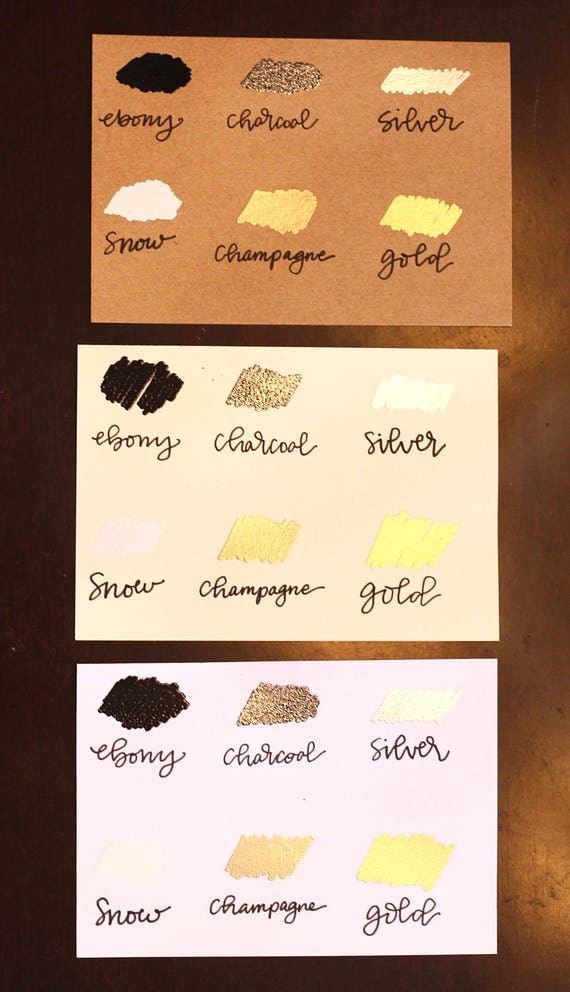 ebony charcoal silver
snow champagne gold
ebony charcoal silver
snow champagne gold
ebony charcoal silver
snow champagne gold